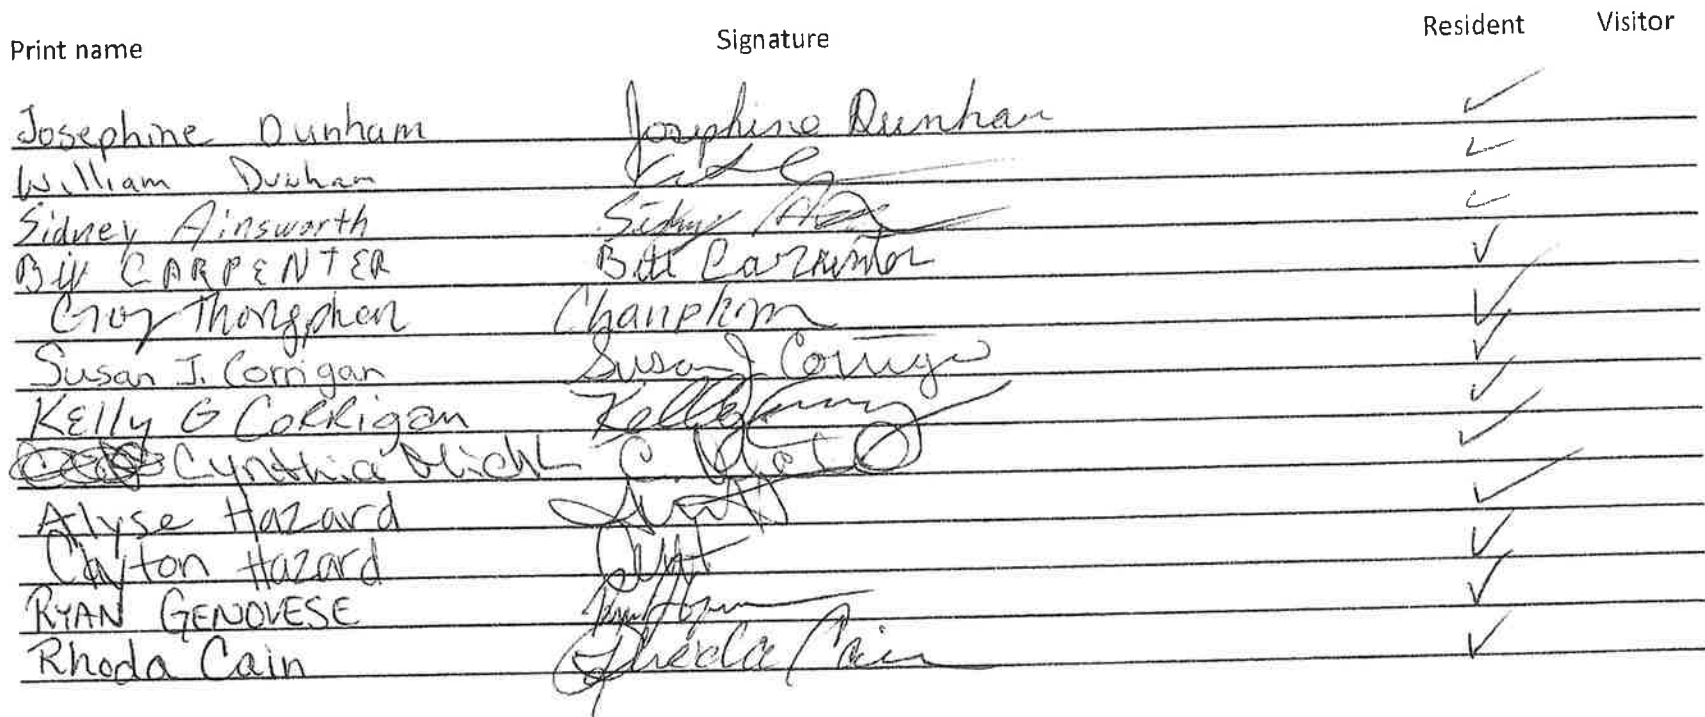 Print name Signature Resident Visitor
Josephine Dunham Josephine Dunham ✓
William Dunham ✓
Sidney Ainsworth Sidney ✓
Bill CARPENTER Bill Carpenter ✓
Thongphan ✓
Susan J. Corrigan Susan J. Corrigan ✓
KElly G CoRRigan Kelly ✓
Cynthia C. ✓
Alyse Hazard ✓
Clayton Hazard ✓
RYAN GENOVESE ✓
Rhoda Cain Rhoda Cain ✓